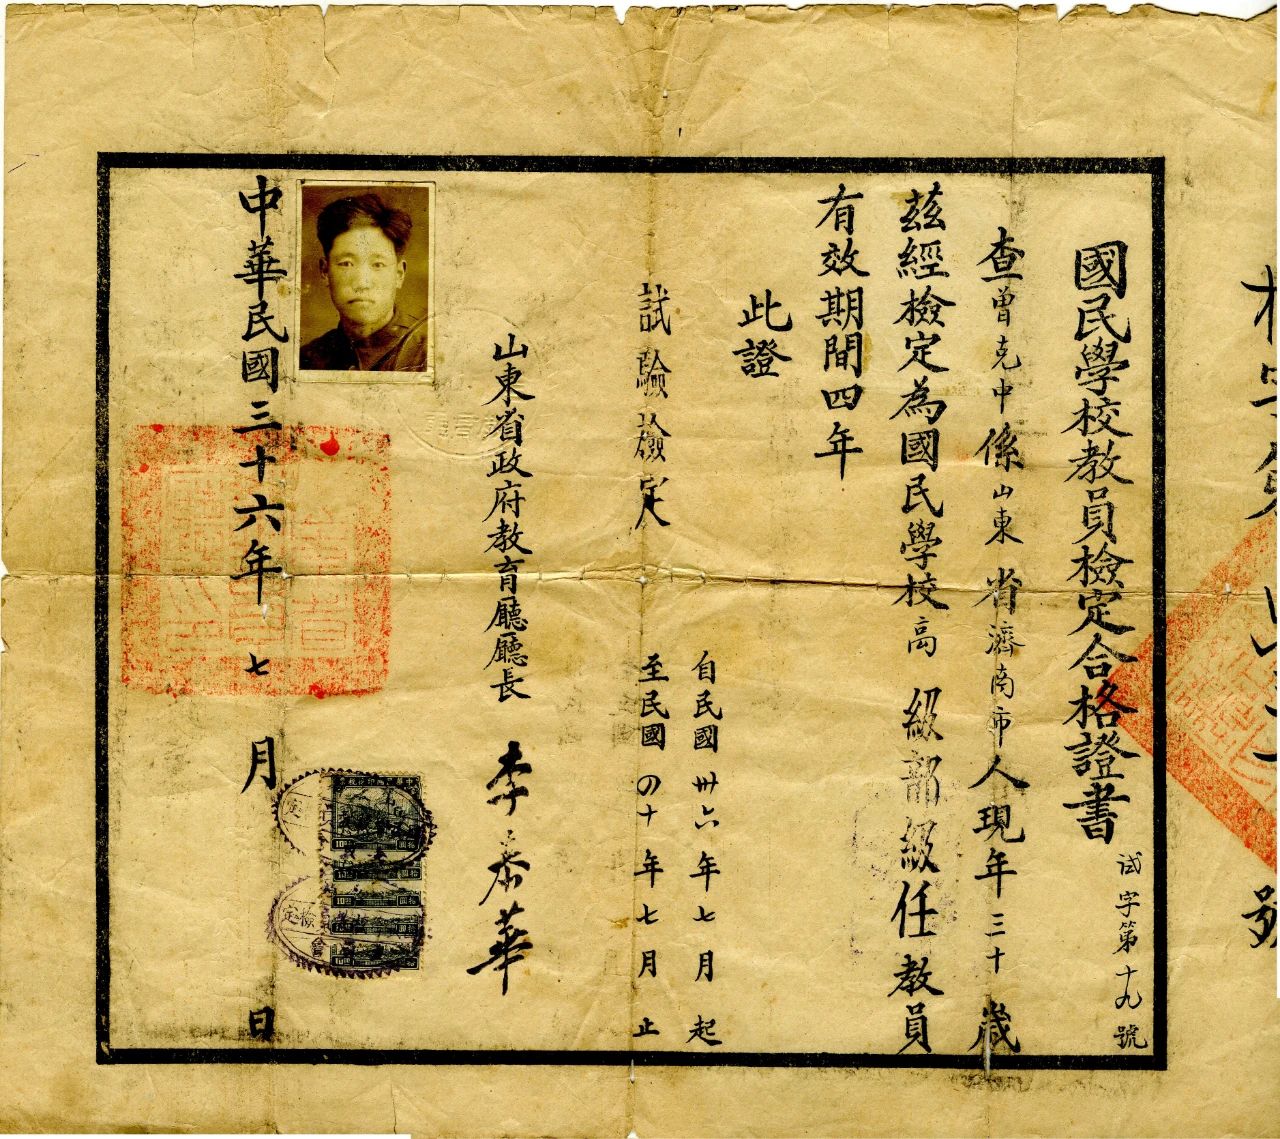 號
國民學校教員檢定合格證書
试字第十九號
查曾克中係山東省濟南市人現年三十歲
茲經檢定為國民學校高級部級任教員
有效期間四年
此證
自民國卅六年七月起
至民國四十年七月止
試驗檢定
山東省政府教育廳廳長 李泰華
中華民國三十六年七月 日